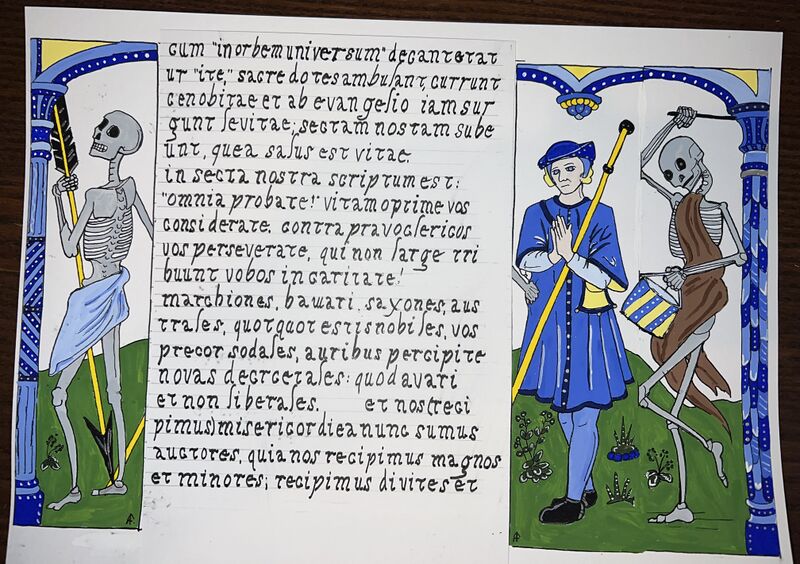 cum "in orbem universum" decantetat
ur "ite," sacredotes ambulant, currunt
cenobitae et ab evangelio iam sur
gunt levitae; sectam nostam sube
unt, quea salus est vitae.
in secta nostra scriptum est:
"omnia probate!" vitam oprime vos
considerate. contra pravos clericos
vos perseverate, qui non large tri
buunt vobos in caritate!
marchiones, bawari, saxones, aus
trales, quotquot estis nobiles, vos
precor sodales, auribus percipite
novas decrcetales: quod avari
et non liberales. et nos (reci
pimus) misericordiea nunc sumus
auctores, quia nos recipimus magnos
et minores; recipimus divites et